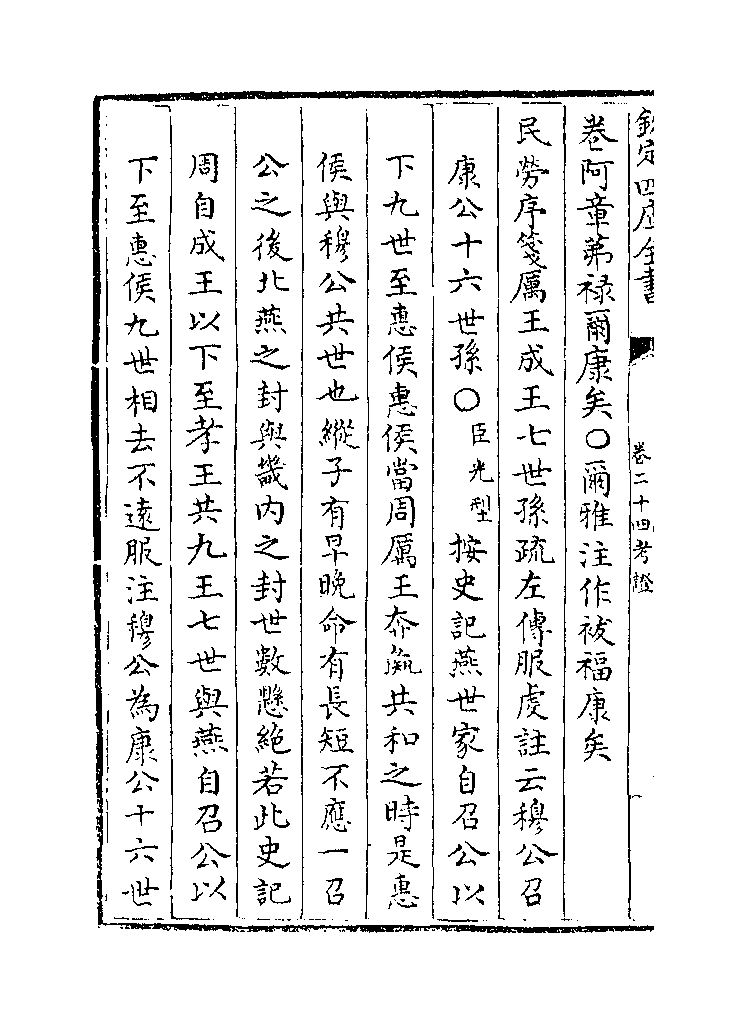 欽定四庫全書
卷二十四考證
卷阿章茀祿爾康矣○爾雅注作祓福康矣
民勞序箋厲王成王七世孫疏左傳服虔註云穆公召
康公十六世孫○臣光型按史記燕世家自召公以
下九世至惠侯惠侯當周厲王奔彘共和之時是惠
侯與穆公共世也縱子有早晚命有長短不應一召
公之後北燕之封與畿内之封世數懸絶若此史記
周自成王以下至孝王共九王七世與燕自召公以
下至惠侯九世相去不遠服注穆公為康公十六世